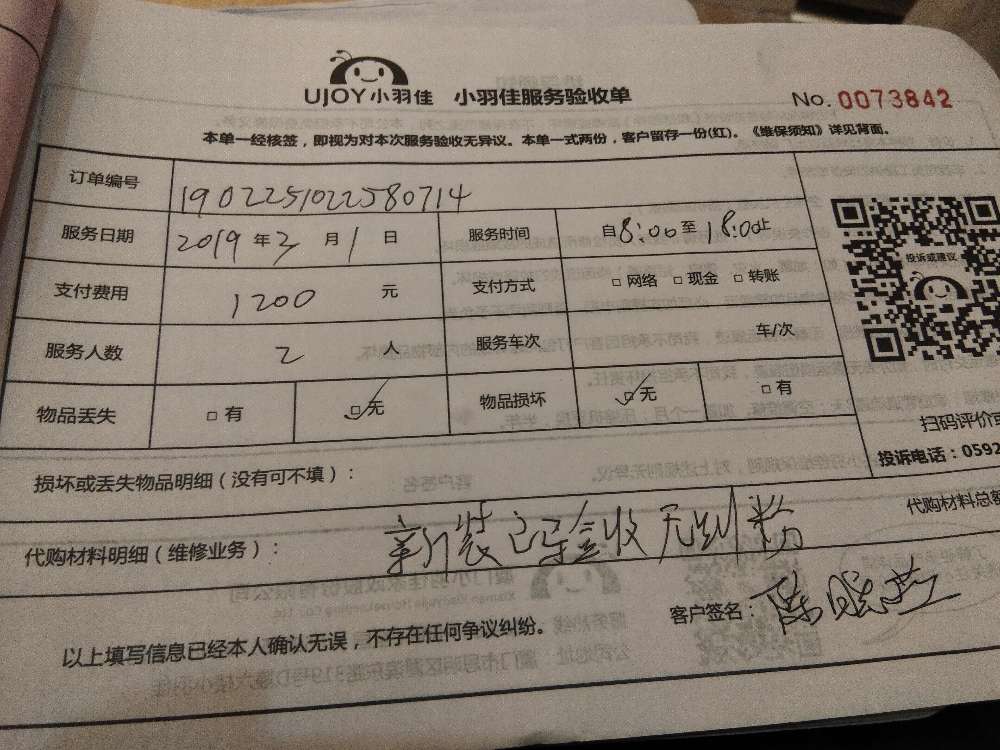 UJOY小羽佳 小羽佳服务验收单 No. 0073842
本单一经核签，即视为对本次服务验收无异议。本单一式两份，客户留存一份(红)。《维保须知》详见背面。
订单编号 190225102258 0714
服务日期 2019 年 3 月 1 日 服务时间 自 8:00 至 18:00 止
投诉或建议
支付费用 1200 元 支付方式 □ 网络 □ 现金 □ 转账
服务人数 2 人 服务车次 车/次
物品丢失 □ 有 ☑ 无 物品损坏 ☑ 无 □ 有
扫码评价或
投诉电话：0592
损坏或丢失物品明细（没有可不填）：
代购材料总额
代购材料明细（维修业务）： 新装已验收无
客户签名：陈晓燕
以上填写信息已经本人确认无误，不存在任何争议纠纷。